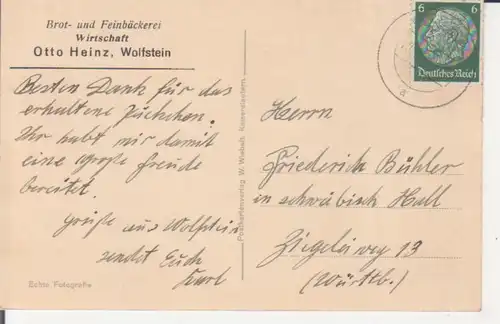 Brot- und Feinbäckerei
Wirtschaft
Otto Heinz, Wolfstein
Besten Dank für das
erhaltene
Ihr habt mir damit
eine große Freude
bereitet.
Grüße aus Wolfstein
sendet Euch
Karl
Echte Fotografie
Postkartenverlag W. Wiebelt, Kaiserslautern
6 6
Deutsches Reich
a
Herrn
Friederich Bühler
in schwäbisch Hall
Ziegeleiweg 13
(Württb.)